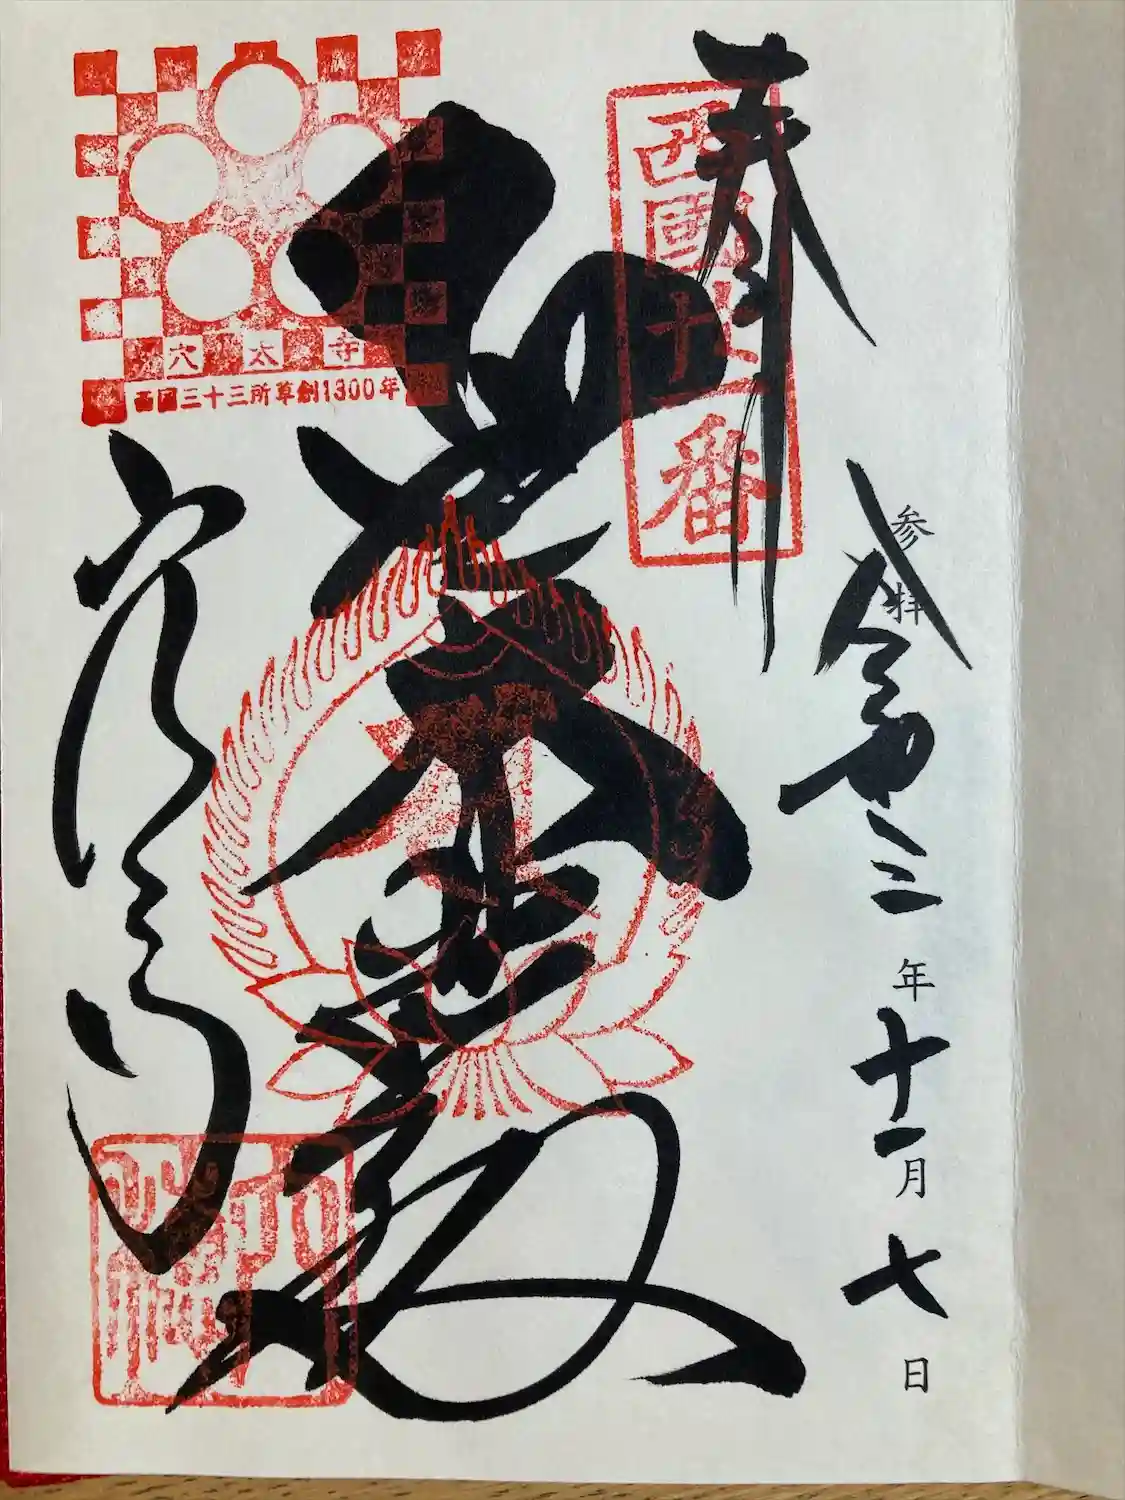 奉
西國廿一番
参拝
令和三年十一月七日
聖大悲殿
穴太寺
穴太寺
西国三十三所草創1300年